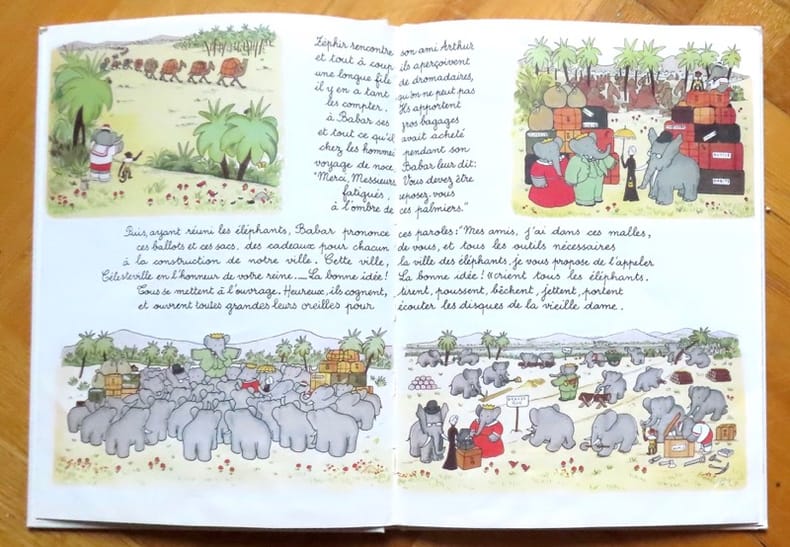 Zéphir rencontre son ami Arthur
et tout à coup ils aperçoivent
une longue file de dromadaires,
il y en a tant qu'on ne peut pas
les compter. Ils apportent
à Babar ses gros bagages
et tout ce qu'il avait acheté
chez les hommes pendant son
voyage de noce. Babar leur dit:
"Merci, Messieurs Vous devez être
fatigués, reposez-vous
à l'ombre de ces palmiers."
Puis, ayant réuni les éléphants, Babar prononce ces paroles: "Mes amis, j'ai dans ces malles,
ces ballots et ces sacs, des cadeaux pour chacun de vous, et tous les outils nécessaires
à la construction de notre ville. Cette ville, la ville des éléphants, je vous propose de l'appeler
Célesteville en l'honneur de votre reine. — La bonne idée! La bonne idée!" crient tous les éléphants.
Tous se mettent à l'ouvrage. Heureux, ils cognent, tirent, poussent, bêchent, jettent, portent
et ouvrent toutes grandes leurs oreilles pour écouter les disques de la vieille dame.